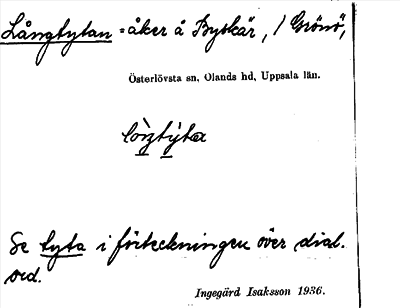 Långtytan = åker å Byskär, / Gräsö,
Österlövsta sn, Olands hd, Uppsala län.
Se tyta i förteckningen över dial.
ord.
Ingegärd Isaksson 1936.